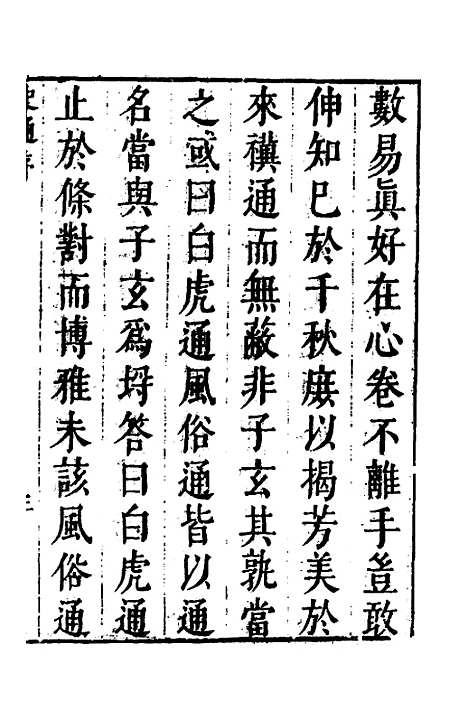 數易眞好在心卷不離手豈敢
伸知己於千秋庻以揭芳美於
來禩通而無蔽非子玄其孰當
之或曰白虎通風俗通皆以通
名當與子玄爲埒答曰白虎通
止於條對而博雅未該風俗通
史通序
三